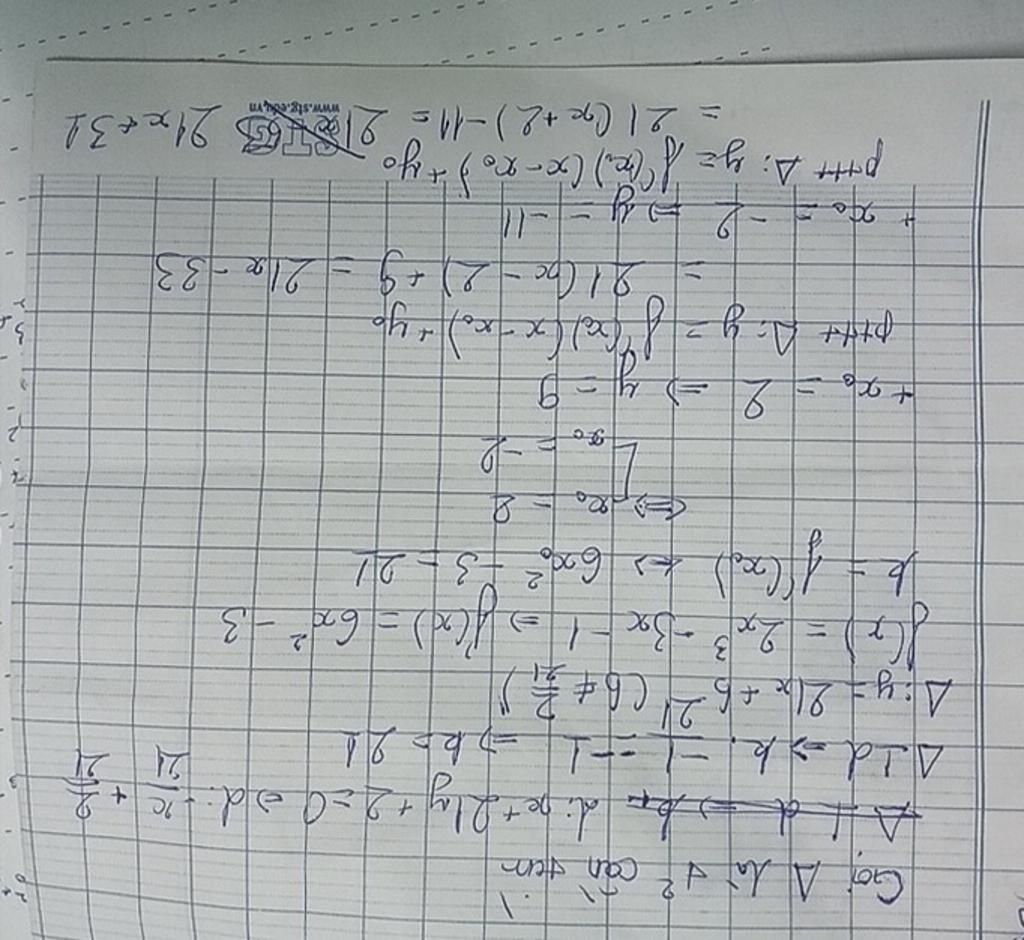 Gọi Δ là t² cần tìm
Δ ⊥ d ⇒ k d: x + 21y + 2 = 0 ⇒ d: -x/21 + 2/21
Δ ⊥ d ⇒ k. -1/21 = -1 ⇒ k = 21
Δ: y = 21x + b (b ≠ 2/21)
f(x) = 2x³ - 3x - 1 ⇒ f'(x) = 6x² - 3
k = f'(x₀) ⇔ 6x₀² - 3 = 21
⇔ [x₀ = 2
x₀ = -2
+ x₀ = 2 ⇒ y = 9
pttt Δ: y = f'(x₀)(x - x₀) + y₀
= 21(x - 2) + 9 = 21x - 33
+ x₀ = -2 ⇒ y = -11
pttt Δ: y = f'(x₀)(x - x₀) + y₀
= 21(x + 2) - 11 = 21x + 31
STG
www.stg.edu.vn